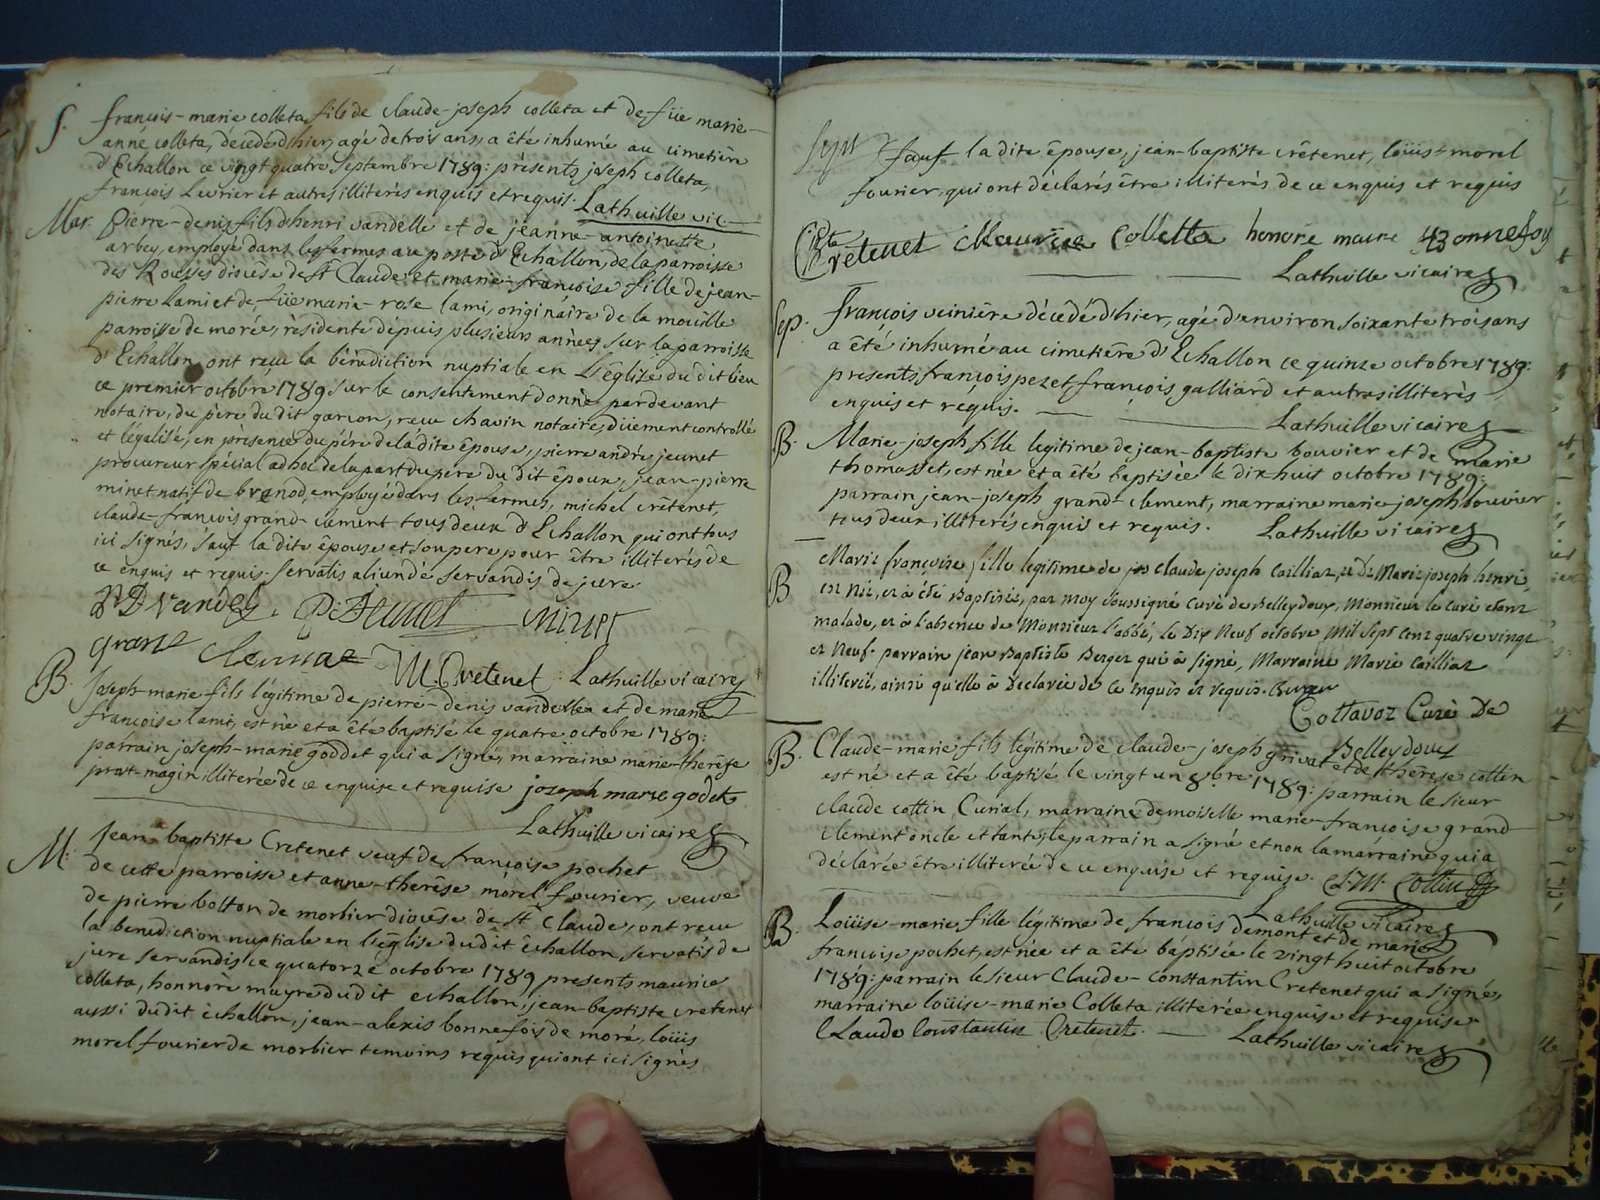 S. françois-marie colleta fils de claude-joseph colleta et de füe marie-
anne colleta, décedé d'hier, agé de trois ans, a êté inhumé au cimetière
d'Echallon ce vingt quatre Septembre 1789: présents joseph colleta,
françois Levrier et autres illiterés enquis et requis. Lathuille vic.
Mar. Pierre-denis fils d'henri vandelle et de jeanne-antoinette
arbey, employé dans les fermes au poste d'Echallon, de la parroisse
des Rousses diocèse de St Claude: et marie-françoise fille de jean-
pierre Lami et de füe marie-rose lami, originaire de la mouille
parroisse de morée, résidente depuis plusieurs années sur la parroisse
d'Echallon, ont reçu la bénédiction nuptiale en L'église du dit lieu
ce premier octobre 1789 sur le consentement donné pardevant
notaire, du père du dit garçon, reçu chavin notaire, düement controllé
et légalisé, en présence du père de la dite épouse, pierre andré jeunet
procureur spécial ad hoc de la part du pere du dit époux, jean-pierre
minet natif de brenod, employé dans les fermes, michel crêtenet,
claude-françois grand-clement tous deux d'Echallon qui ont tous
ici signés, sauf la dite épouse et son pere pour être illiterés de
ce enquis et requis. servatis aliundè servandis de jure
P D Vandel. P: A Jeunet Minet
grand Clemmaz M. Cretenet Lathuille vicaire
B. Joseph-marie fils légitime de pierre-denis vandelle et de marie
françoise lami, est né et a êté baptisé le quatre octobre 1789:
parrain joseph-marie goddet qui a signé, marraine marie-thérèse
prost-magnin illiterée de ce enquise et requise joseph marie godet
Lathuille vicaire
M: Jean baptiste Cretenet veuf de françoise pochet
de cette parroisse et anne-thérèse morel fourier, veuve
de pierre botton de morbier diocèse de St Claude, ont reçu
la bénédiction nuptiale en l'église du dit échallon, servatis de
jure servandis ce quatorze octobre 1789 presents maurice
colleta, honnore mayre du dit echallon, jean-baptiste cretenet
aussi du dit échallon, jean-alexis bonnefois de moré, loüis
morel fourier de morbier temoins requis qui ont ici signés
Sauf la dite épouse, jean-baptiste crêtenet, loüis-morel
fourier, qui ont déclarés être illiterés de ce enquis et requis
Cretenet Maurice Colletta honoré maire Bonnefoy
Lathuille vicaire
Sep. François veiniére décedé d'hier, agé d'environ soixante trois ans
a êté inhumé au cimetière d'Echallon ce quinze octobre 1789:
présents françois pezet, françois galliard et autres illiterés
enquis et requis.
Lathuille vicaire
B. Marie-joseph fille legitime de jean-baptiste bouvier et de marie
thomasset, est née et a êté baptisée le dix huit octobre 1789:
parrain jean-joseph grand-clement, marraine marie-joseph bouvier
tous deux illiterés enquis et requis. Lathuille vicaire
B Marie françoise fille legitime de claude joseph Cailliaz, et de Marie joseph henri,
est Née, et à été Baptisée, par moy soussigné Curé de Belleydoux, Monsieur le Curé etant
malade, et à l'absence de Monsieur l'abbé, le Dix Neuf octobre Mil Sept Cent quatre vingt
et Neuf. parrain jean Baptiste Berger qui à signé, Marraine Marie Cailliaz
illiteré, ainsi qu'elle à Declarée de ce enquis et requis.
Cottavoz Curé De
Belleydoux
B. Claude-marie fils légitime de claude-joseph grivat et de thérèse cottin
est né et a êté baptisé le vingt un 8bre 1789: parrain le sieur
claude cottin Curial, marraine demoiselle marie-françoise grand-
clement oncle et tante, le parrain a signé et non la marraine qui a
déclarée être illiterée de ce enquise et requise. C. M. Cottin
Lathuille vicaire
B. Loüise-marie fille légitime de françois demont et de marie
françoise pochet, est née et a êté baptisée le vingt huit octobre
1789: parrain le sieur Claude-constantin Cretenet qui a signé,
marraine loüise-marie Colleta illiterée enquise et requise
Claude Constantin Cretenet. Lathuille vicaire